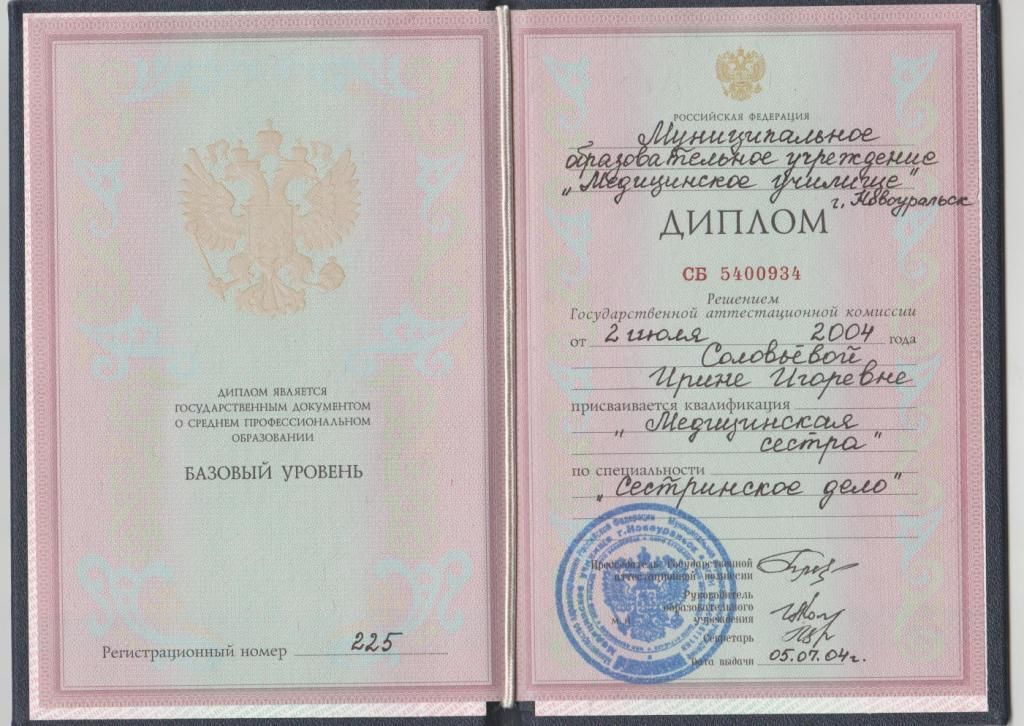 ДИПЛОМ ЯВЛЯЕТСЯ
ГОСУДАРСТВЕННЫМ ДОКУМЕНТОМ
О СРЕДНЕМ ПРОФЕССИОНАЛЬНОМ
ОБРАЗОВАНИИ
БАЗОВЫЙ УРОВЕНЬ
Регистрационный номер 225
РОССИЙСКАЯ ФЕДЕРАЦИЯ
Муниципальное
образовательное учреждение
"Медицинское училище"
г. Новоуральск
ДИПЛОМ
СБ 5400934
Решением
Государственной аттестационной комиссии
от 2 июля 2004 года
Соловьёвой
Ирине Игоревне
присваивается квалификация
"Медицинская
сестра"
по специальности
"Сестринское дело"
Председатель Государственной
аттестационной комиссии
Руководитель
образовательного
учреждения
Секретарь
Дата выдачи 05.07.04г.